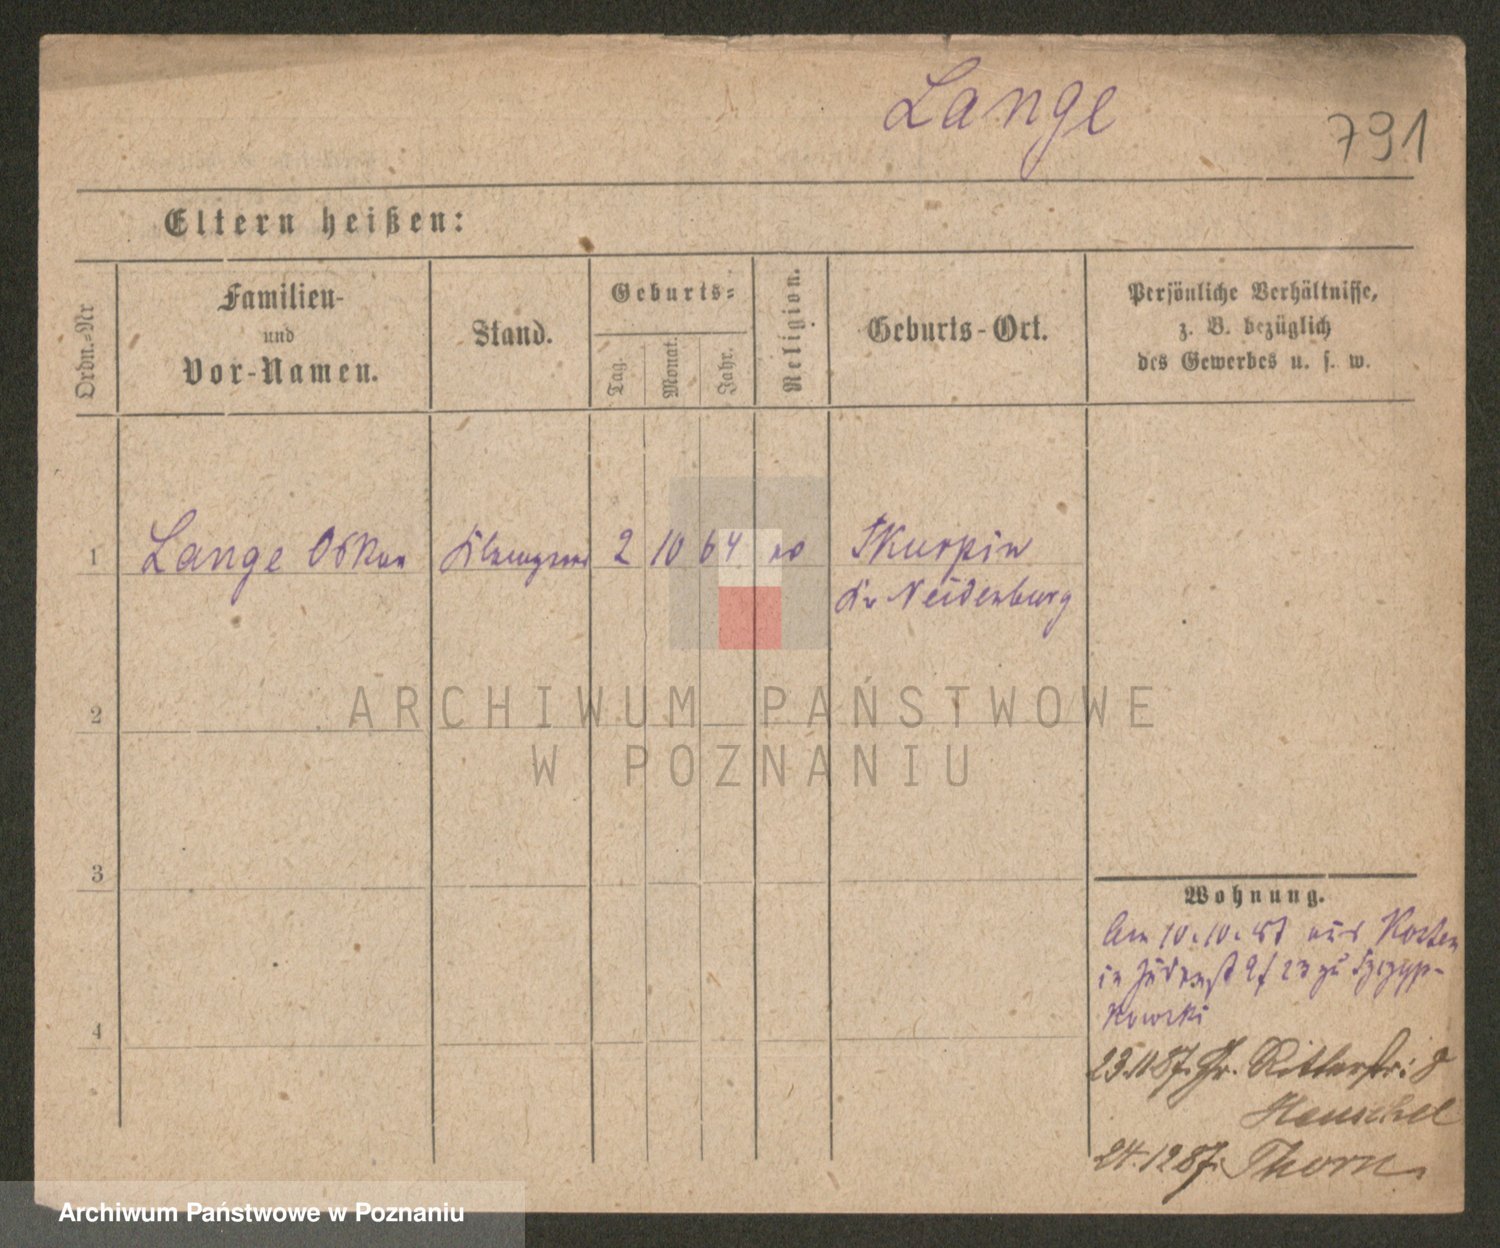 Lange
791
Eltern heißen:
Ordn.-Nr
Familien-
und
Vor-Namen.
Stand.
Geburts-
Tag.
Monat.
Jahr.
Religion.
Geburts-Ort.
Persönliche Verhältnisse,
z. B. bezüglich
des Gewerbes u. s. w.
1
Lange Oskar
2
10
64
Skurpin
Kr Neidenburg
2
3
4
ARCHIWUM PAŃSTWOWE
W POZNANIU
Wohnung.
Am 10.10.87 aus Kosten
in 23 zu
kowski
23.11.87. Gr. Ritterstr: 8
Henschel
24.12.87. Thorn
Archiwum Państwowe w Poznaniu